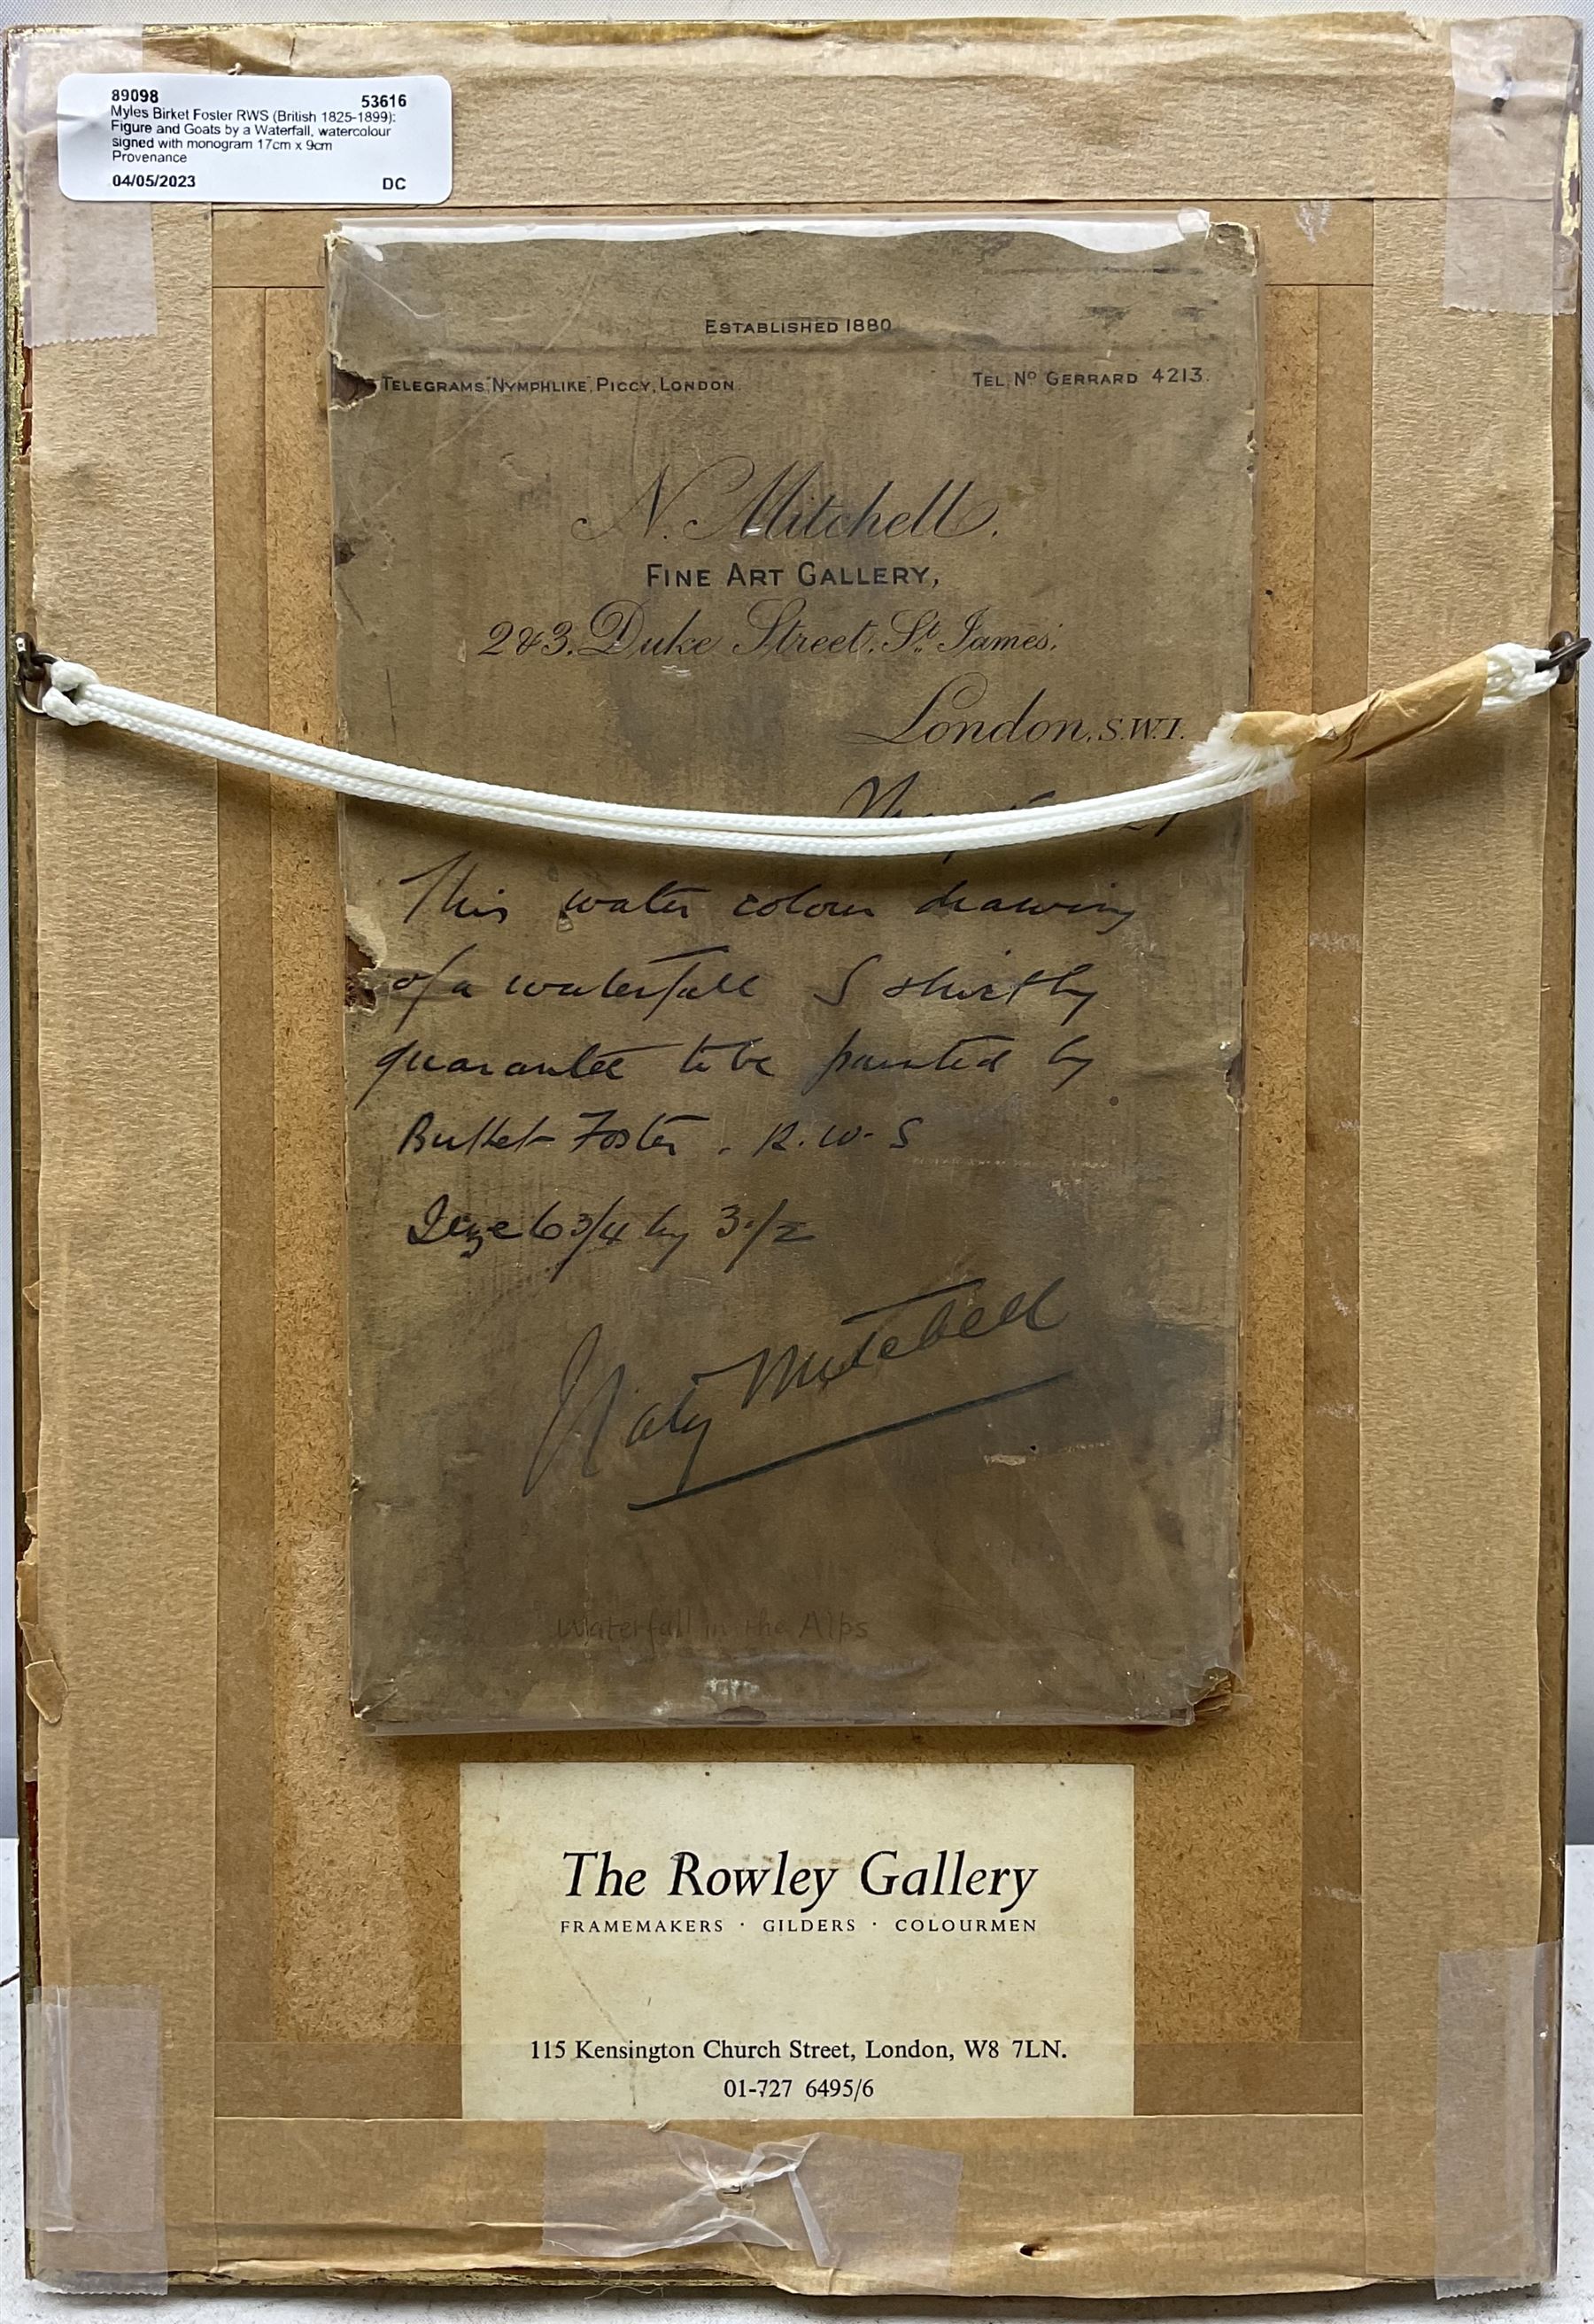 89098 53616
Myles Birket Foster RWS (British 1825-1899):
Figure and Goats by a Waterfall, watercolour
signed with monogram 17cm x 9cm
Provenance
04/05/2023 DC
ESTABLISHED 1880
TELEGRAMS, NYMPHLIKE, PICCY, LONDON. TEL. Nº GERRARD 4213.
N. Mitchell.
FINE ART GALLERY,
2 & 3, Duke Street, St. James,
London, S.W.1.
This water colour drawing
of a waterfall I
guarantee to be painted by
Birket Foster. R.W.S
Size 6 3/4 by 3 1/2
Mitchell
Waterfall in the Alps
The Rowley Gallery
FRAMEMAKERS · GILDERS · COLOURMEN
115 Kensington Church Street, London, W8 7LN.
01-727 6495/6